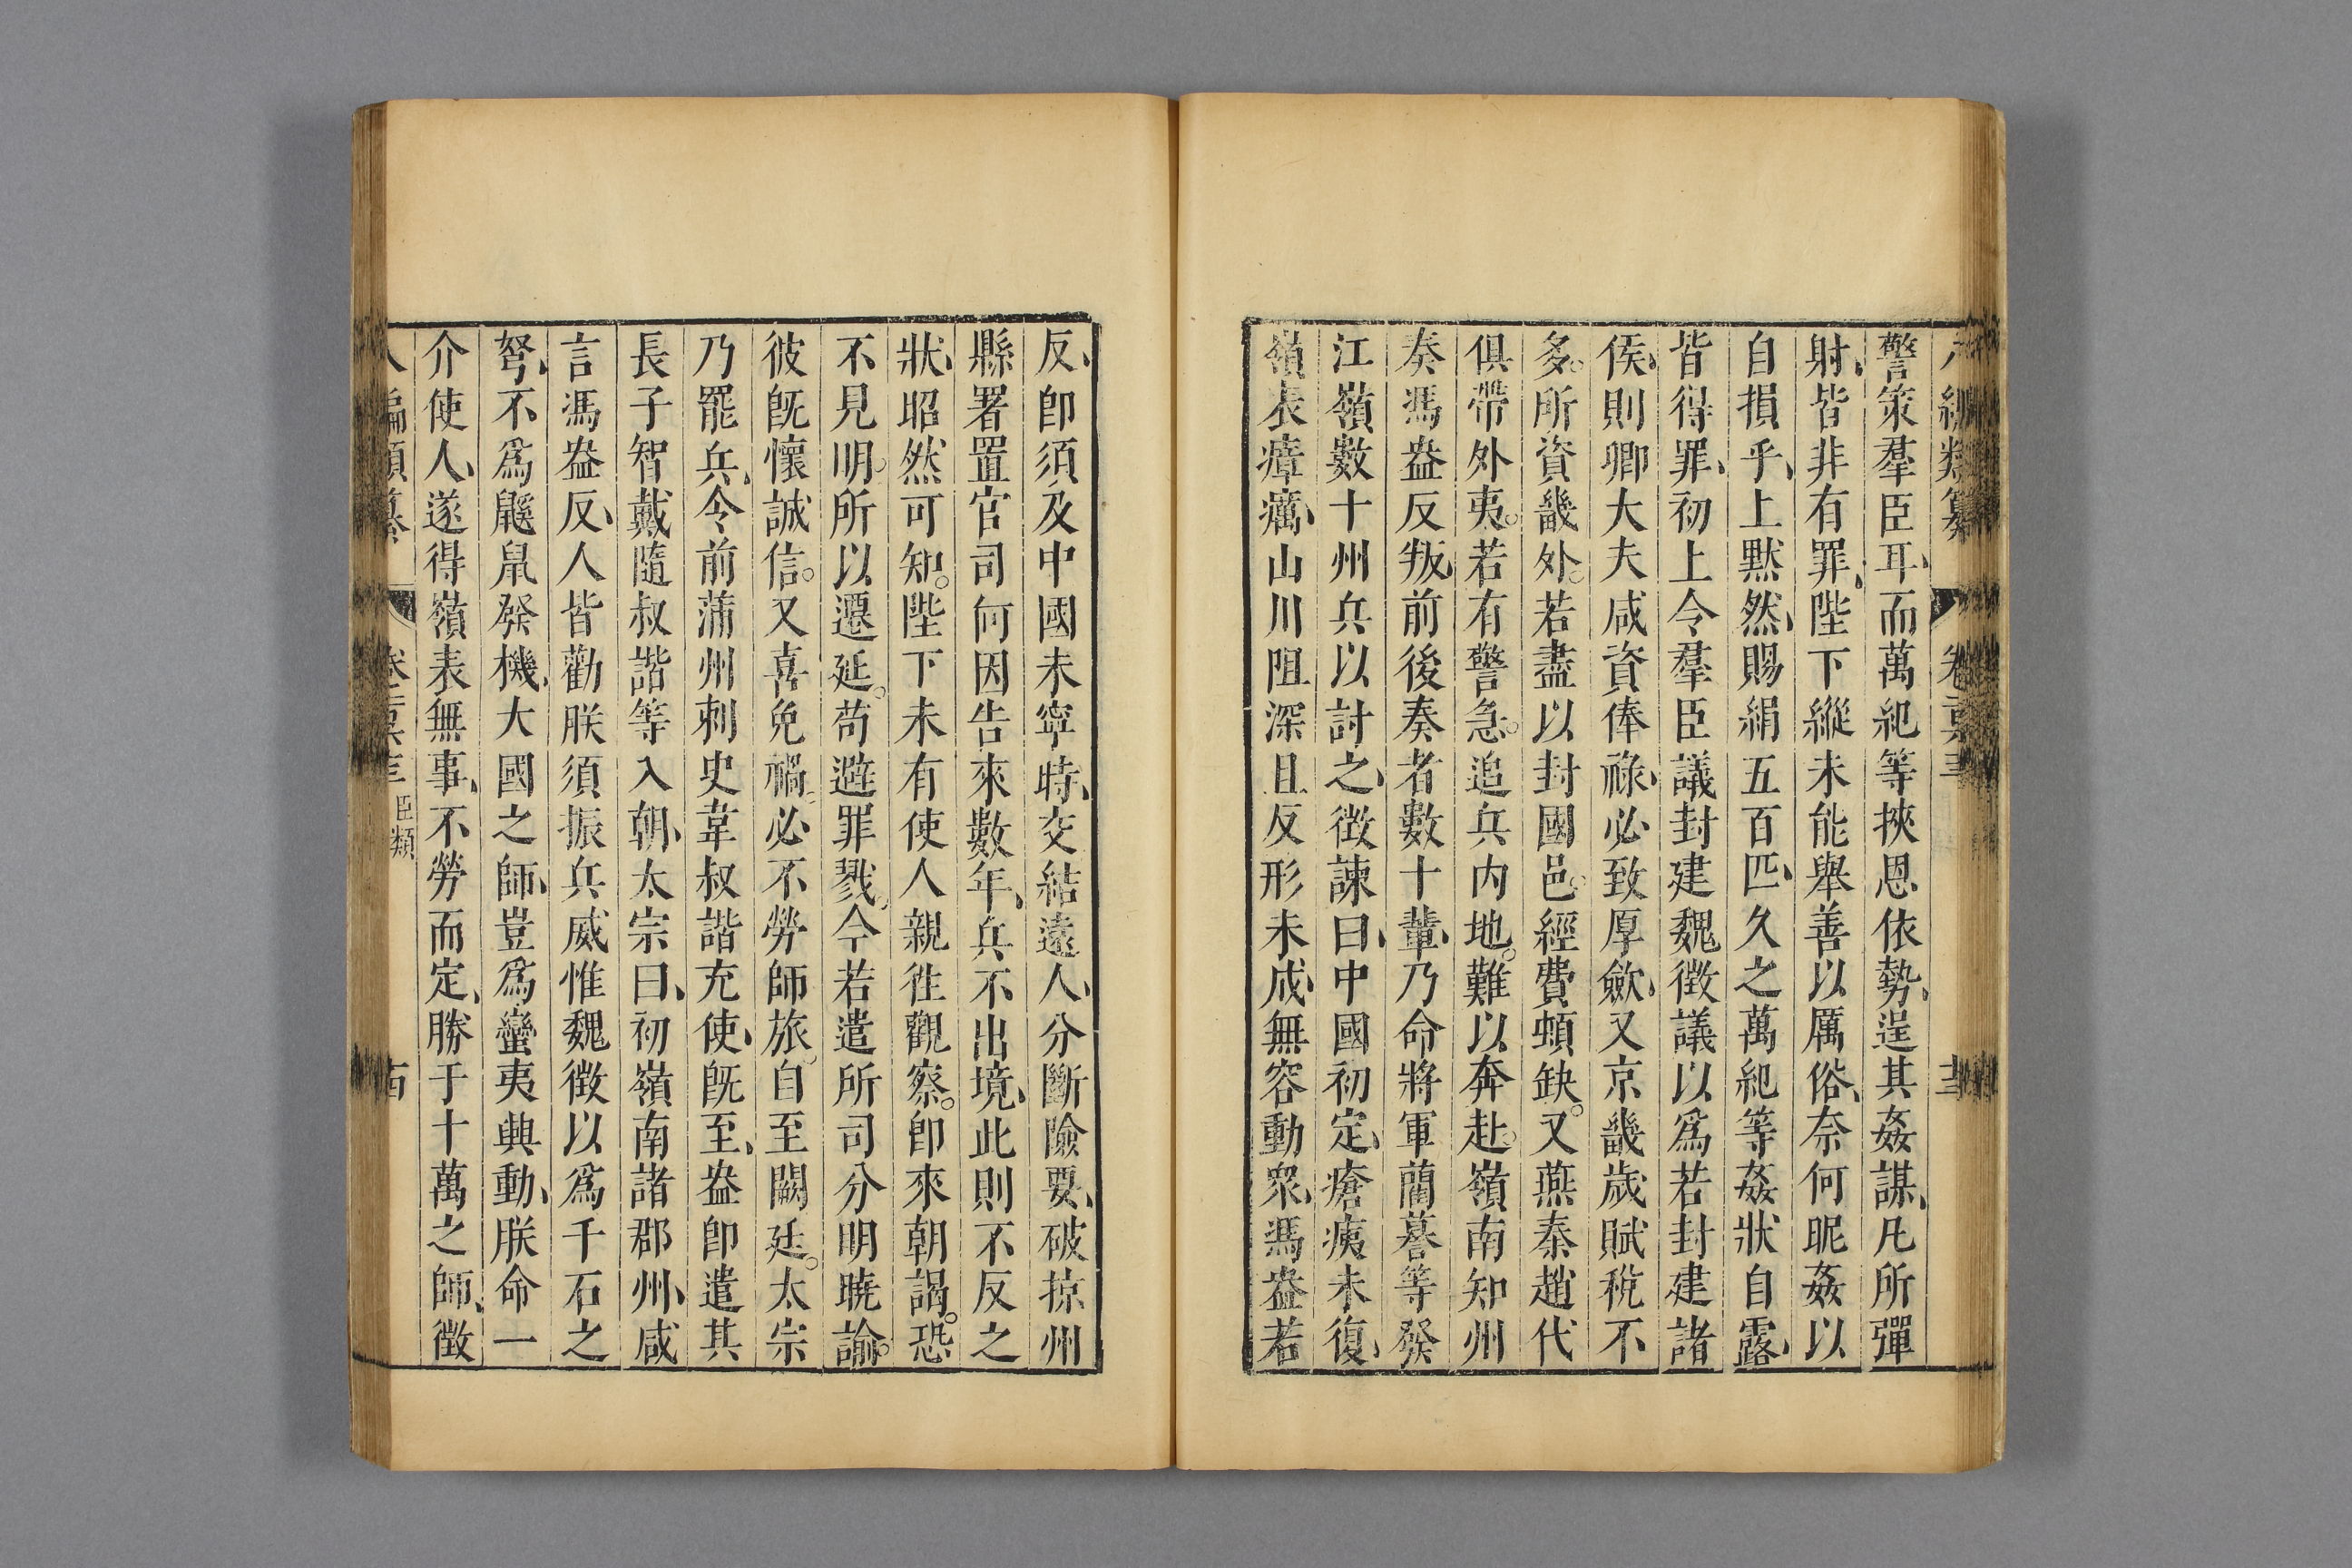 八編類纂
卷
警策羣臣耳而萬紀等挾恩依勢逞其姦謀凢所彈
射皆非有罪陛下縱未能舉善以厲俗奈何昵姦以
自損乎上默然賜絹五百匹久之萬紀等姦狀自露
皆得罪初上令羣臣議封建魏徵議以爲若封建諸
侯則卿大夫咸資俸祿必致厚歛又京畿歲賦稅不
多所資畿外若盡以封國邑經費頓缺又燕秦趙代
俱帶外夷若有警急追兵内地難以奔赴嶺南知州
奏馮盎反叛前後奏者數十輩乃命將軍藺謩等發
江嶺數十州兵以討之徴諫曰中國初定瘡痍未復
嶺表瘴癘山川阻深且反形未成無容動衆馮盎若
反即須及中國未寧時交結遠人分斷險要破掠州
縣署置官司何因告來數年兵不出境此則不反之
狀昭然可知陛下未有使人親徃觀察即來朝謁恐
不見明所以遷延苟避罪戮今若遣所司分明曉諭
彼旣懷誠信又喜免禍必不勞師旅自至闕廷太宗
乃罷兵令前蒲州刺史韋叔諧充使旣至盎即遣其
長子智戴隨叔諧等入朝太宗曰初嶺南諸郡州咸
言馮盎反人皆勸朕須振兵威惟魏徴以爲千石之
弩不爲鼷鼠發機大國之師豈爲蠻夷興動朕命一
介使人遂得嶺表無事不勞而定勝于十萬之師徴
八編類纂
臣類